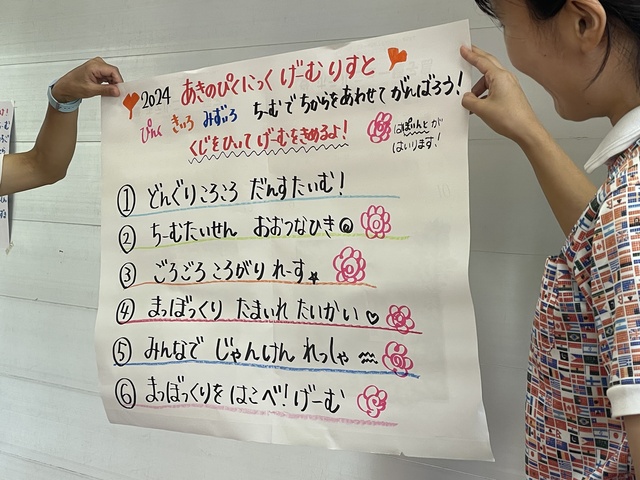 2024 あきのぴくにっく げーむ りすと
ぴんく きいろ みずいろ ちーむで ちからをあわせて がんばろう!
くじをひいて げーむをきめるよ!
はぽいんとが
はいります!
① どんぐりころころ だんすたいむ!
② ちーむたいせん おおつなひき
③ ごろごろ ころがり れーす
④ まつぼっくり たまいれ たいかい
⑤ みんなで じゃんけん れっしゃ
⑥ まつぼっくりを はこべ! げーむ